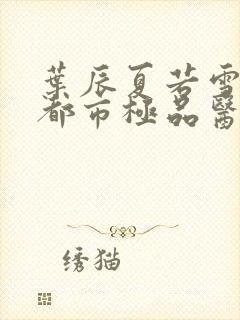 葉辰夏若雪
都市極品醫
绣猫